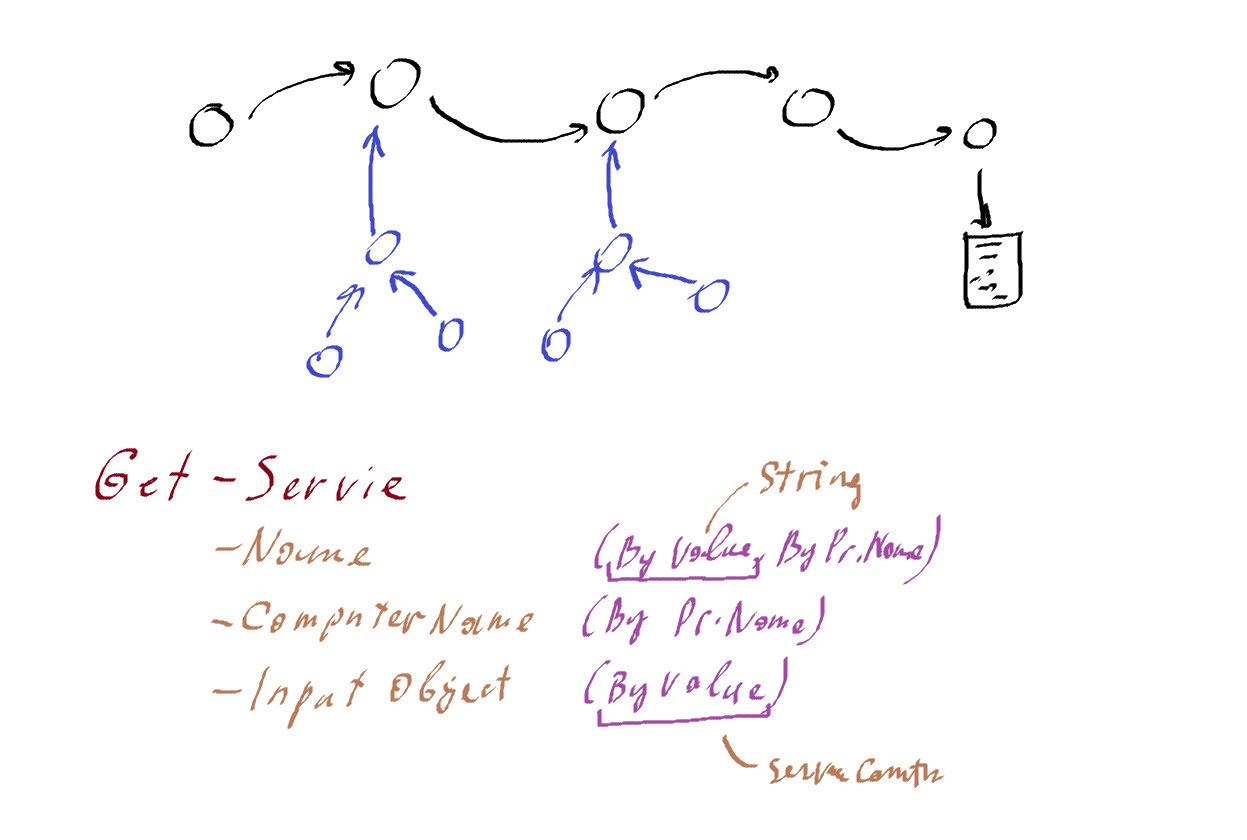 Get-Servie
String
-Name (By Value, By Pr.Name)
-ComputerName (By Pr.Name)
-Input Object (By Value)